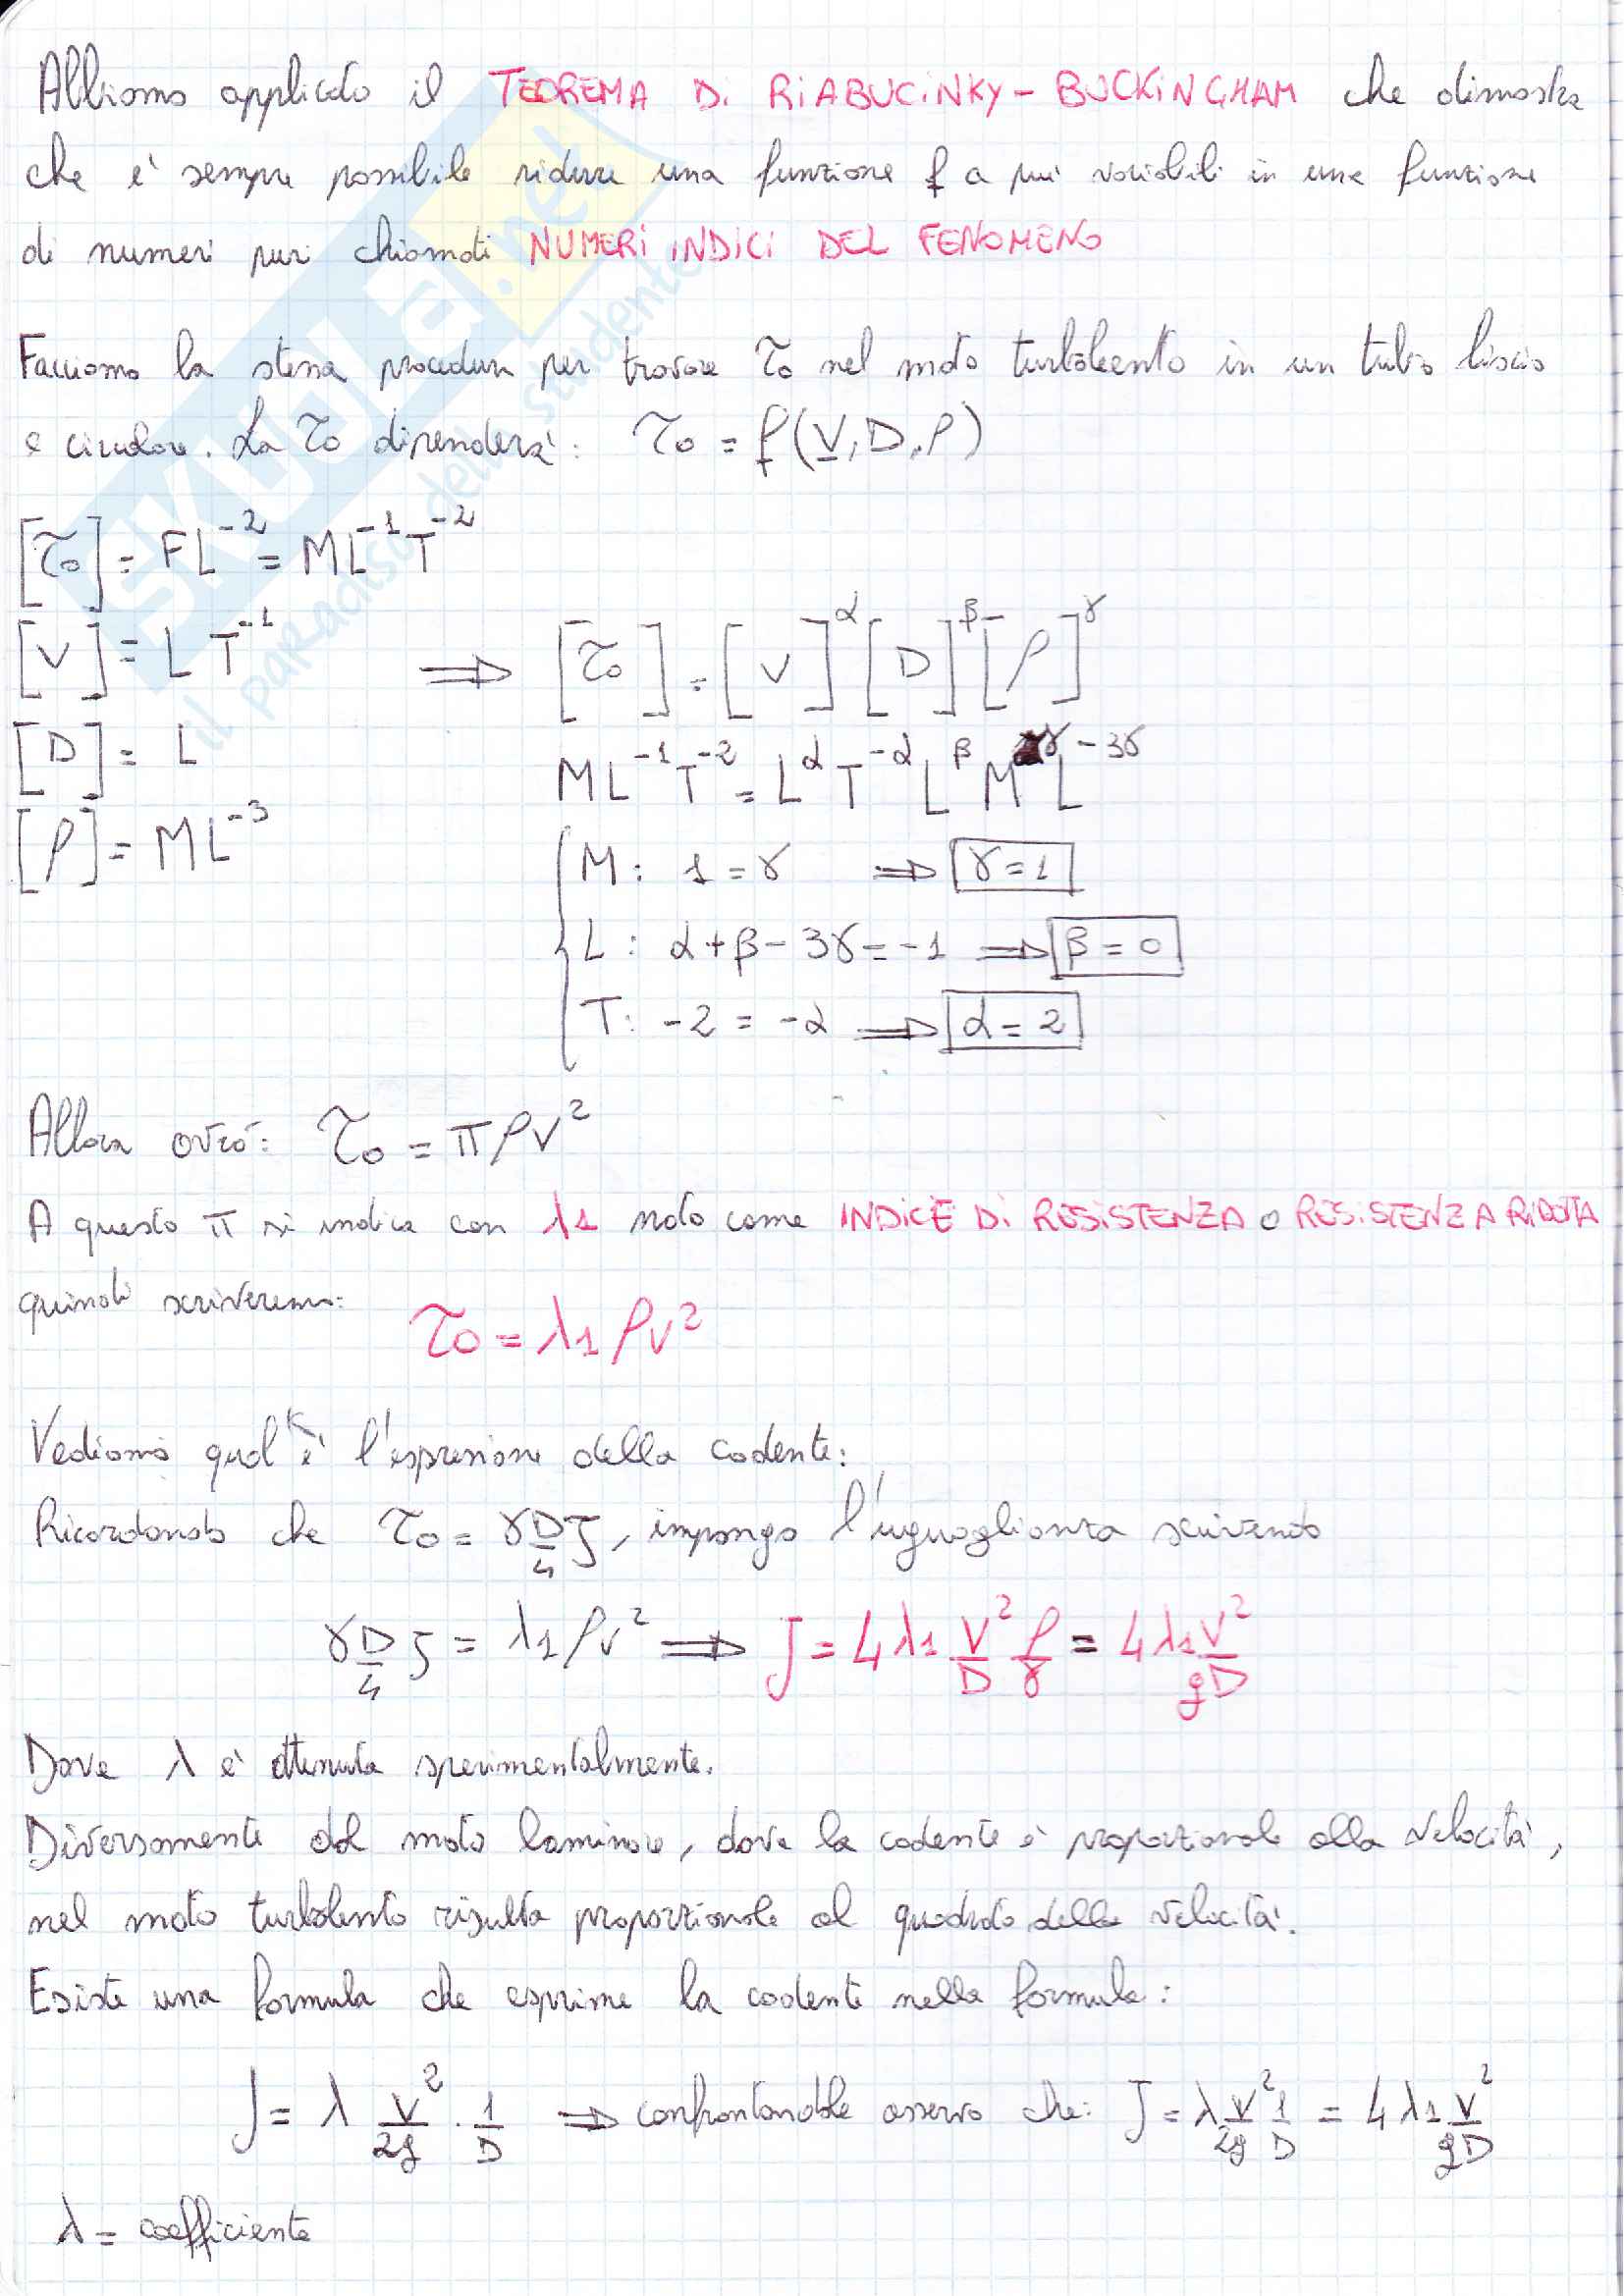 Abbiamo applicato il TEOREMA Di RiABUCiNKY - BUCKiNGHAM che dimostra
che e' sempre possibile ridurre una funzione f a più variabili in una funzione
di numeri puri chiamati NUMERi iNDiCi DEL FENOMENO
Facciamo la stessa procedura per trovare τ0 nel moto turboleento in un tubo liscio
e circolare. La τ0 dipenderà: τ0 = f(V, D, ρ)
[τ0] = FL^-2 = ML^-1 T^-2
[V] = L T^-1 ⇒ [τ0] = [V]^α [D]^β [ρ]^γ
[D] = L
ML^-1 T^-2 = L^α T^-α L^β M^γ L^-3γ
[ρ] = ML^-3
M: 1 = γ ⇒ γ = 1
L: α + β - 3γ = -1 ⇒ β = 0
T: -2 = -α ⇒ α = 2
Allora avrò: τ0 = π ρ V²
A questo π si indica con λ1 noto come iNDiCE Di RESiSTENZA o RESiSTENZA RiDOTTA
quindi scriveremo:
τ0 = λ1 ρ V²
Vediamo qual è l'espressione della cadente:
Ricordando che τ0 = γ D/4 J, impongo l'uguaglianza scrivendo
γ D/4 J = λ1 ρ V² ⇒ J = 4 λ1 V²/D ρ/γ = 4 λ1 V²/gD
Dove λ e' ottenuta sperimentalmente.
Diversamente dal moto laminare, dove la cadente è proporzionale alla velocità,
nel moto turbolento risulta proporzionale al quadrato della velocità.
Esiste una formula che esprime la cadente nella formula:
J = λ V²/2g · 1/D ⇒ confrontandole osservo che: J = λ V²/2g 1/D = 4 λ1 V²/gD
λ = coefficiente
SKUOLA.net
il paradiso dello studente